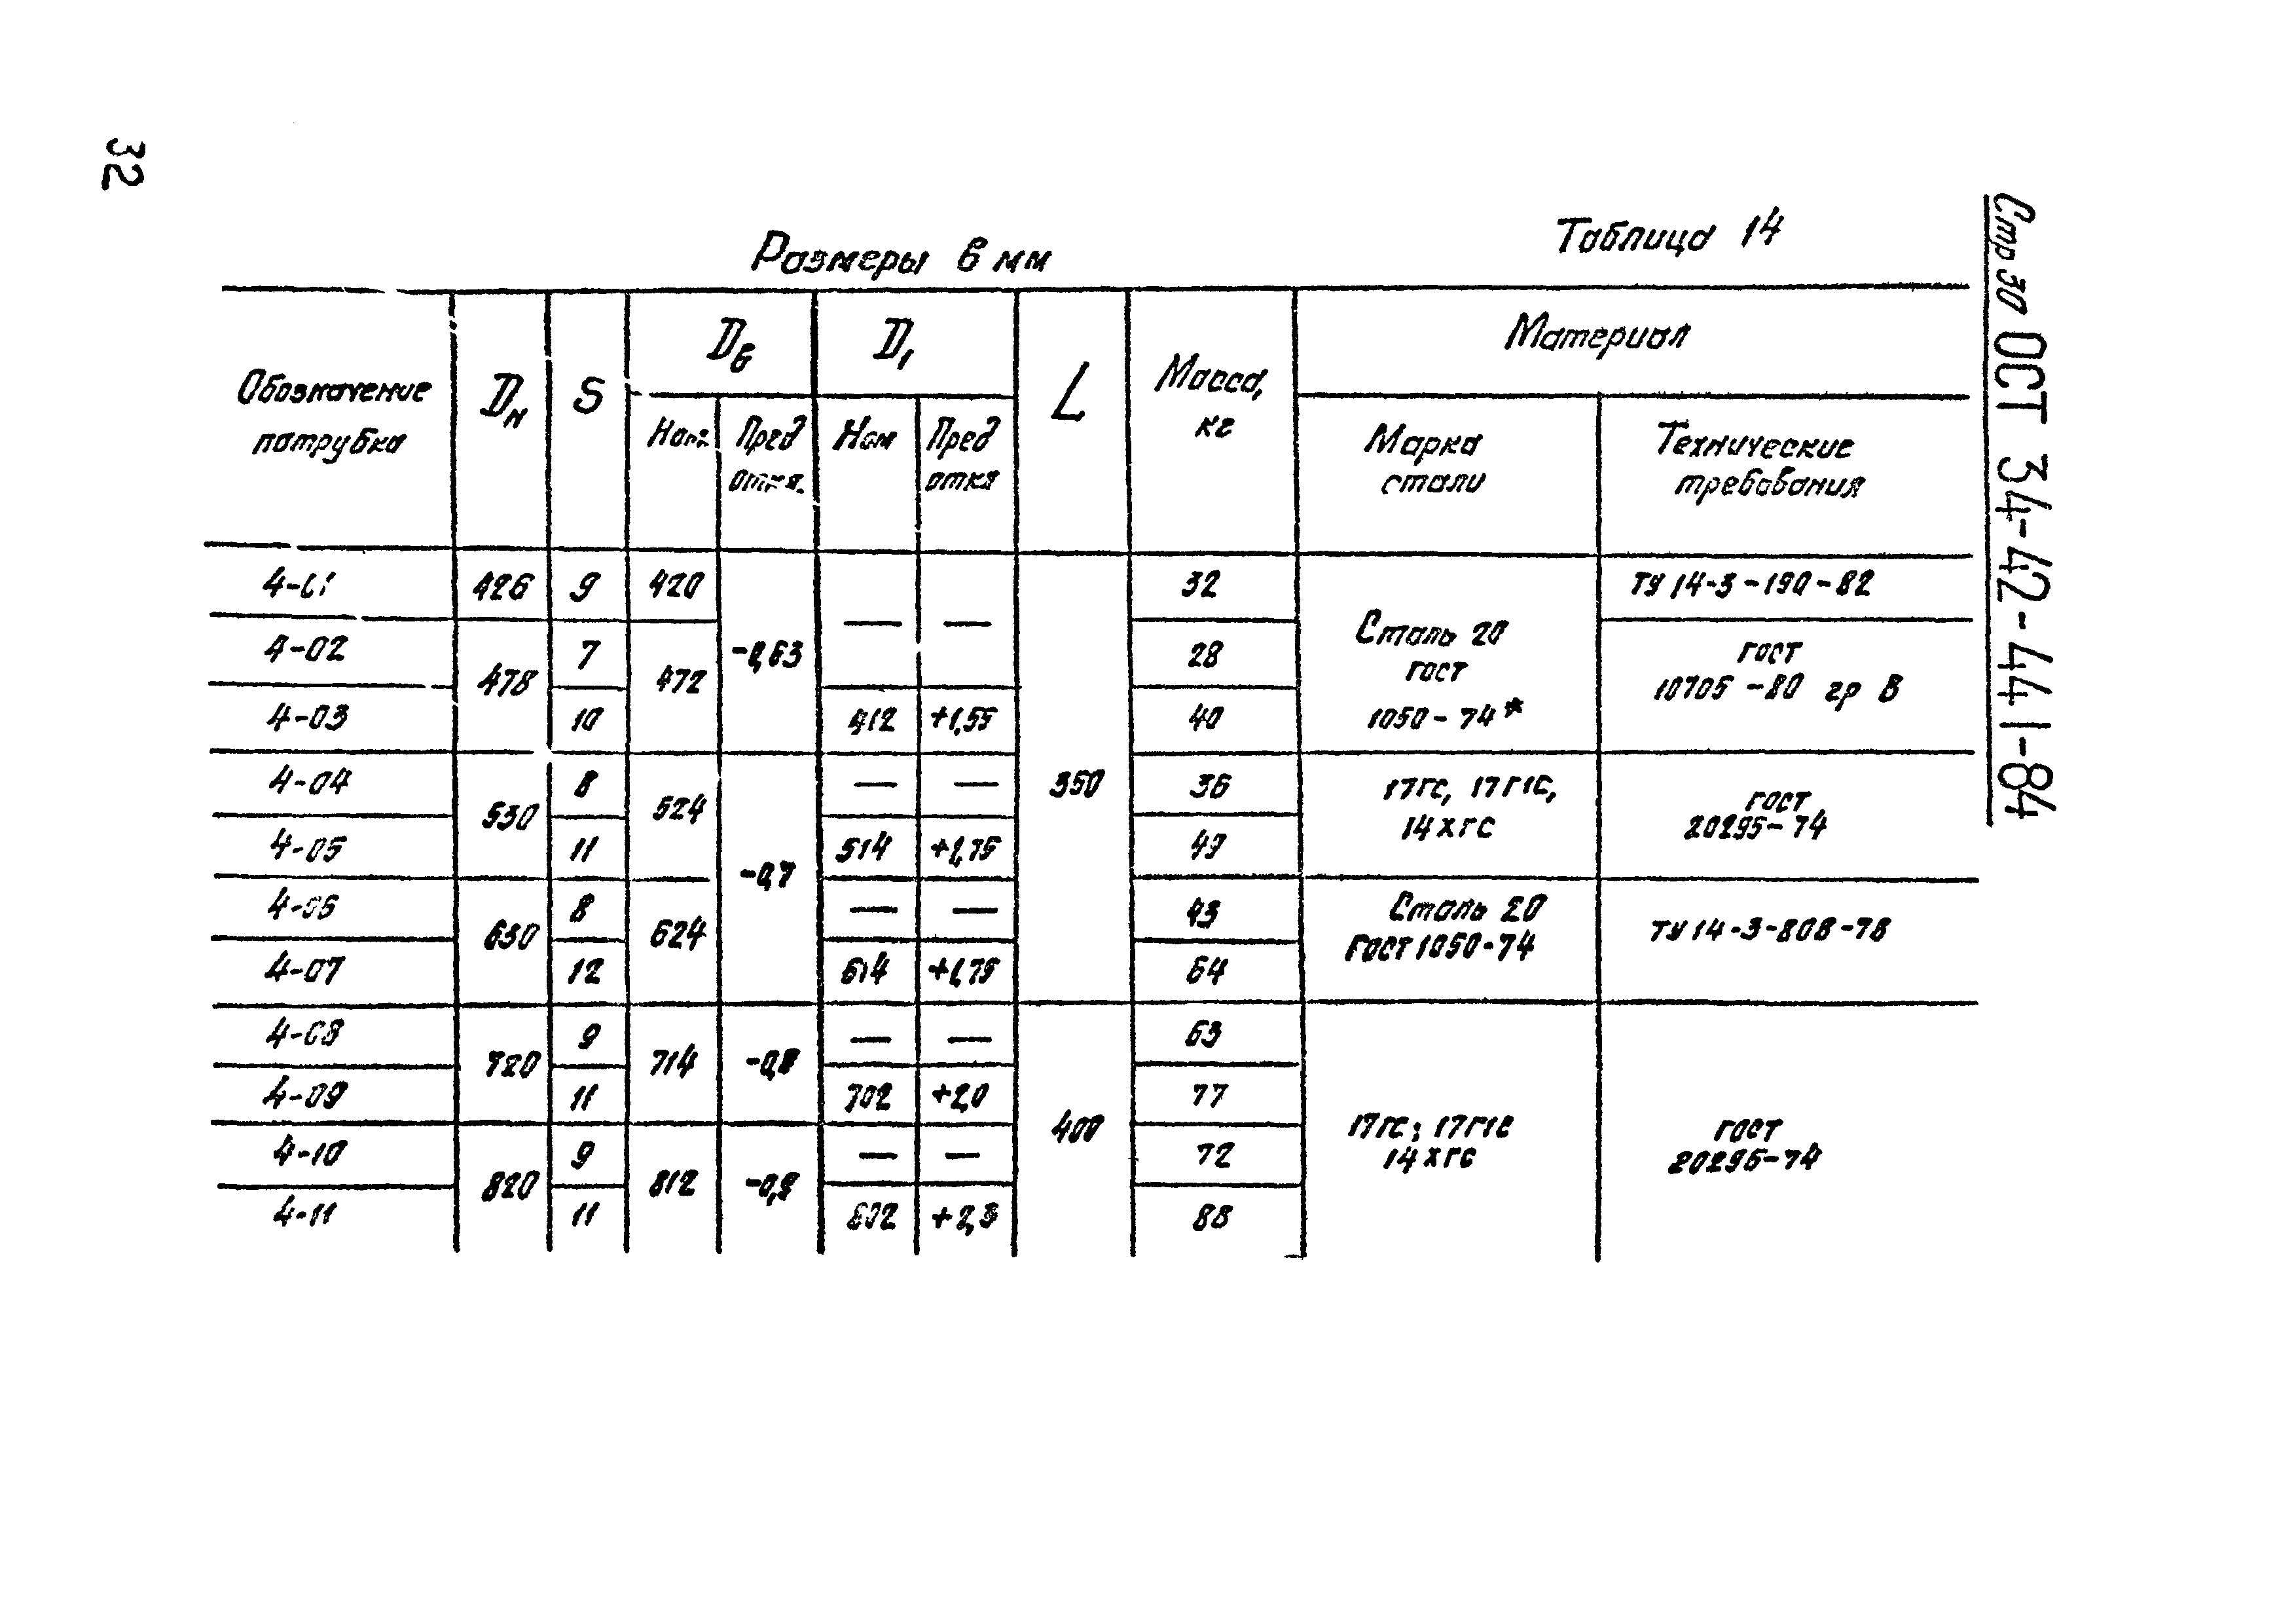 32
Стр 30 ОСТ 34-42-441-84
Размеры в мм
Таблица 14
Обозначение
патрубка
Dн
S
Dв
D1
L
Масса,
кг
Материал
Ном.
Пред
откл.
Ном
Пред
откл
Марка
стали
Технические
требования
4-01 426 9 420 32 ТУ 14-3-190-82
— —
4-02 7 28
478 472 -0,63
4-03 10 412 +1,55 40
Сталь 20
ГОСТ
1050-74*
ГОСТ
10705-80 гр В
4-04 8 — — 36
530 524 350
4-05 11 514 +1,75 49
17ГС, 17Г1С,
14ХГС
ГОСТ
20295-74
-0,7
4-06 8 — — 43
630 624
4-07 12 614 +1,75 64
Сталь 20
ГОСТ 1050-74
ТУ 14-3-808-78
4-08 9 — — 63
720 714 -0,8
4-09 11 702 +2,0 77
400
4-10 9 — — 72
820 812 -0,9
4-11 11 802 +2,3 88
17ГС; 17Г1С
14ХГС
ГОСТ
20295-74